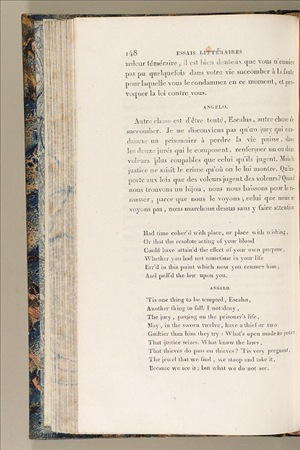 148 ESSAIS LITTÉRAIRES
ardeur téméraire, il est bien douteux que vous n'eussiez
pas pu quelquefois dans votre vie succomber à la faute
pour laquelle vous le condamnez en ce moment, et pro-
voquer la loi contre vous.
ANGELO.
Autre chose est d'être tenté, Escalus, autre chose de
succomber. Je ne disconviens pas qu'un jury qui con-
damne un prisonnier à perdre la vie puisse, dans
les douze jurés qui le composent, renfermer un ou deux
voleurs plus coupables que celui qu'ils jugent. Mais la
justice ne saisit le crime qu'où on le lui montre. Qu'im-
porte aux lois que des voleurs jugent des voleurs? Quand
nous trouvons un bijou, nous nous baissons pour le ra-
masser, parce que nous le voyons; celui que nous ne
voyons pas, nous marchons dessus sans y faire attention
Had time coher'd with place, or place with wishing,
Or that the resolute acting of your blood
Could have attain'd the effect of your own purpose,
Whether you had not sometime in your life
Err'd in this point which now you censure him,
And pull'd the law upon you.
ANGELO.
'Tis one thing to be tempted, Escalus,
Another thing to fall. I not deny,
The jury, passing on the prisoner's life,
May, in the sworn twelve, have a thief or two
Guiltier than him they try: What's open made to justice,
That justice seizes. What know the laws,
That thieves do pass on thieves? 'Tis very pregnant,
The jewel that we find, we stoop and take it,
Because we see it; but what we do not see,